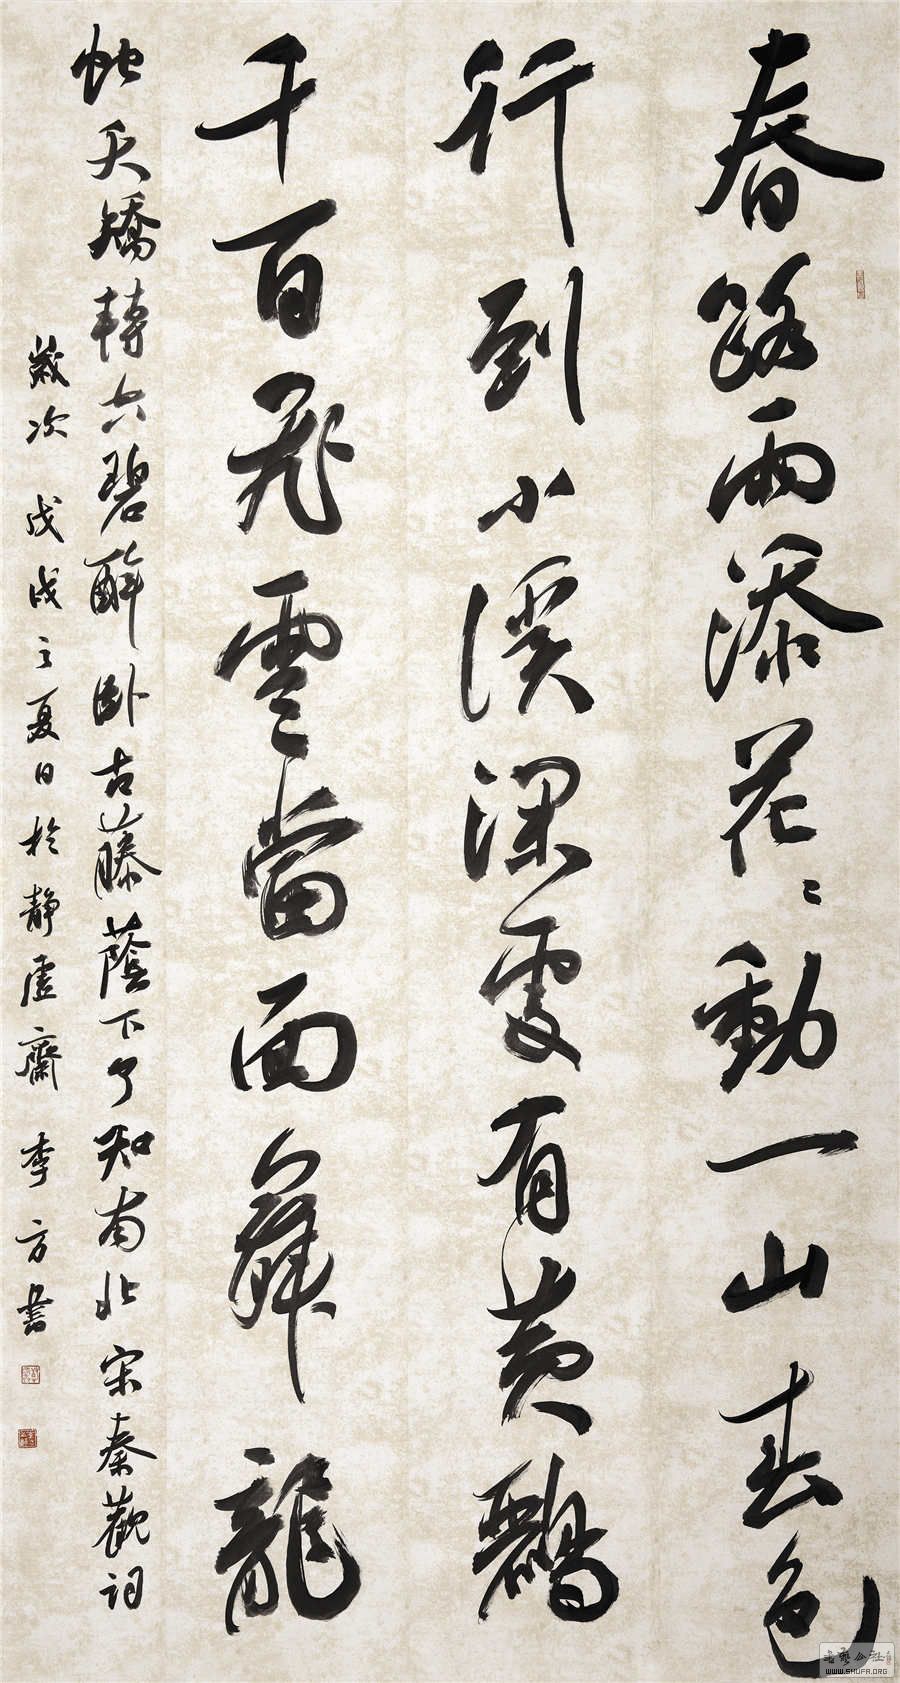 春路雨添花〻動一山春色
行到小溪深處有黃鸝
千百飛雲當面舞龍
蛇夭矯轉空碧醉卧古藤蔭下了知南北 宋秦觀詞
歲次戊戌之夏日於靜虛齋 李方書
書藝公社
WWW.SHUFA.ORG